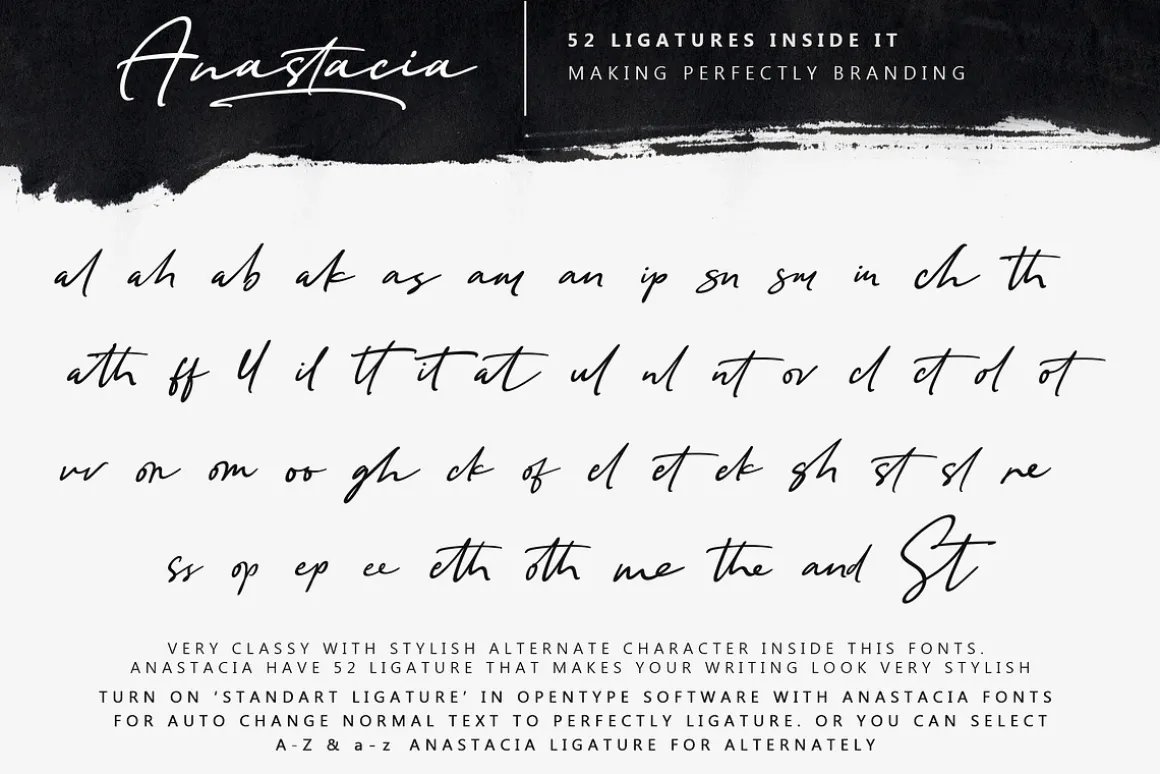 Anastacia
52 LIGATURES INSIDE IT
MAKING PERFECTLY BRANDING
al ah ab ak as am an ip sn sm in ch th
ath ff ll il tt it at ul nl nt ov cl ct ol ot
vv on om oo gh ck of el et ek sh st sl re
ss op ep ee eth oth me the and St
VERY CLASSY WITH STYLISH ALTERNATE CHARACTER INSIDE THIS FONTS.
ANASTACIA HAVE 52 LIGATURE THAT MAKES YOUR WRITING LOOK VERY STYLISH
TURN ON ‘STANDART LIGATURE’ IN OPENTYPE SOFTWARE WITH ANASTACIA FONTS
FOR AUTO CHANGE NORMAL TEXT TO PERFECTLY LIGATURE. OR YOU CAN SELECT
A-Z & a-z ANASTACIA LIGATURE FOR ALTERNATELY